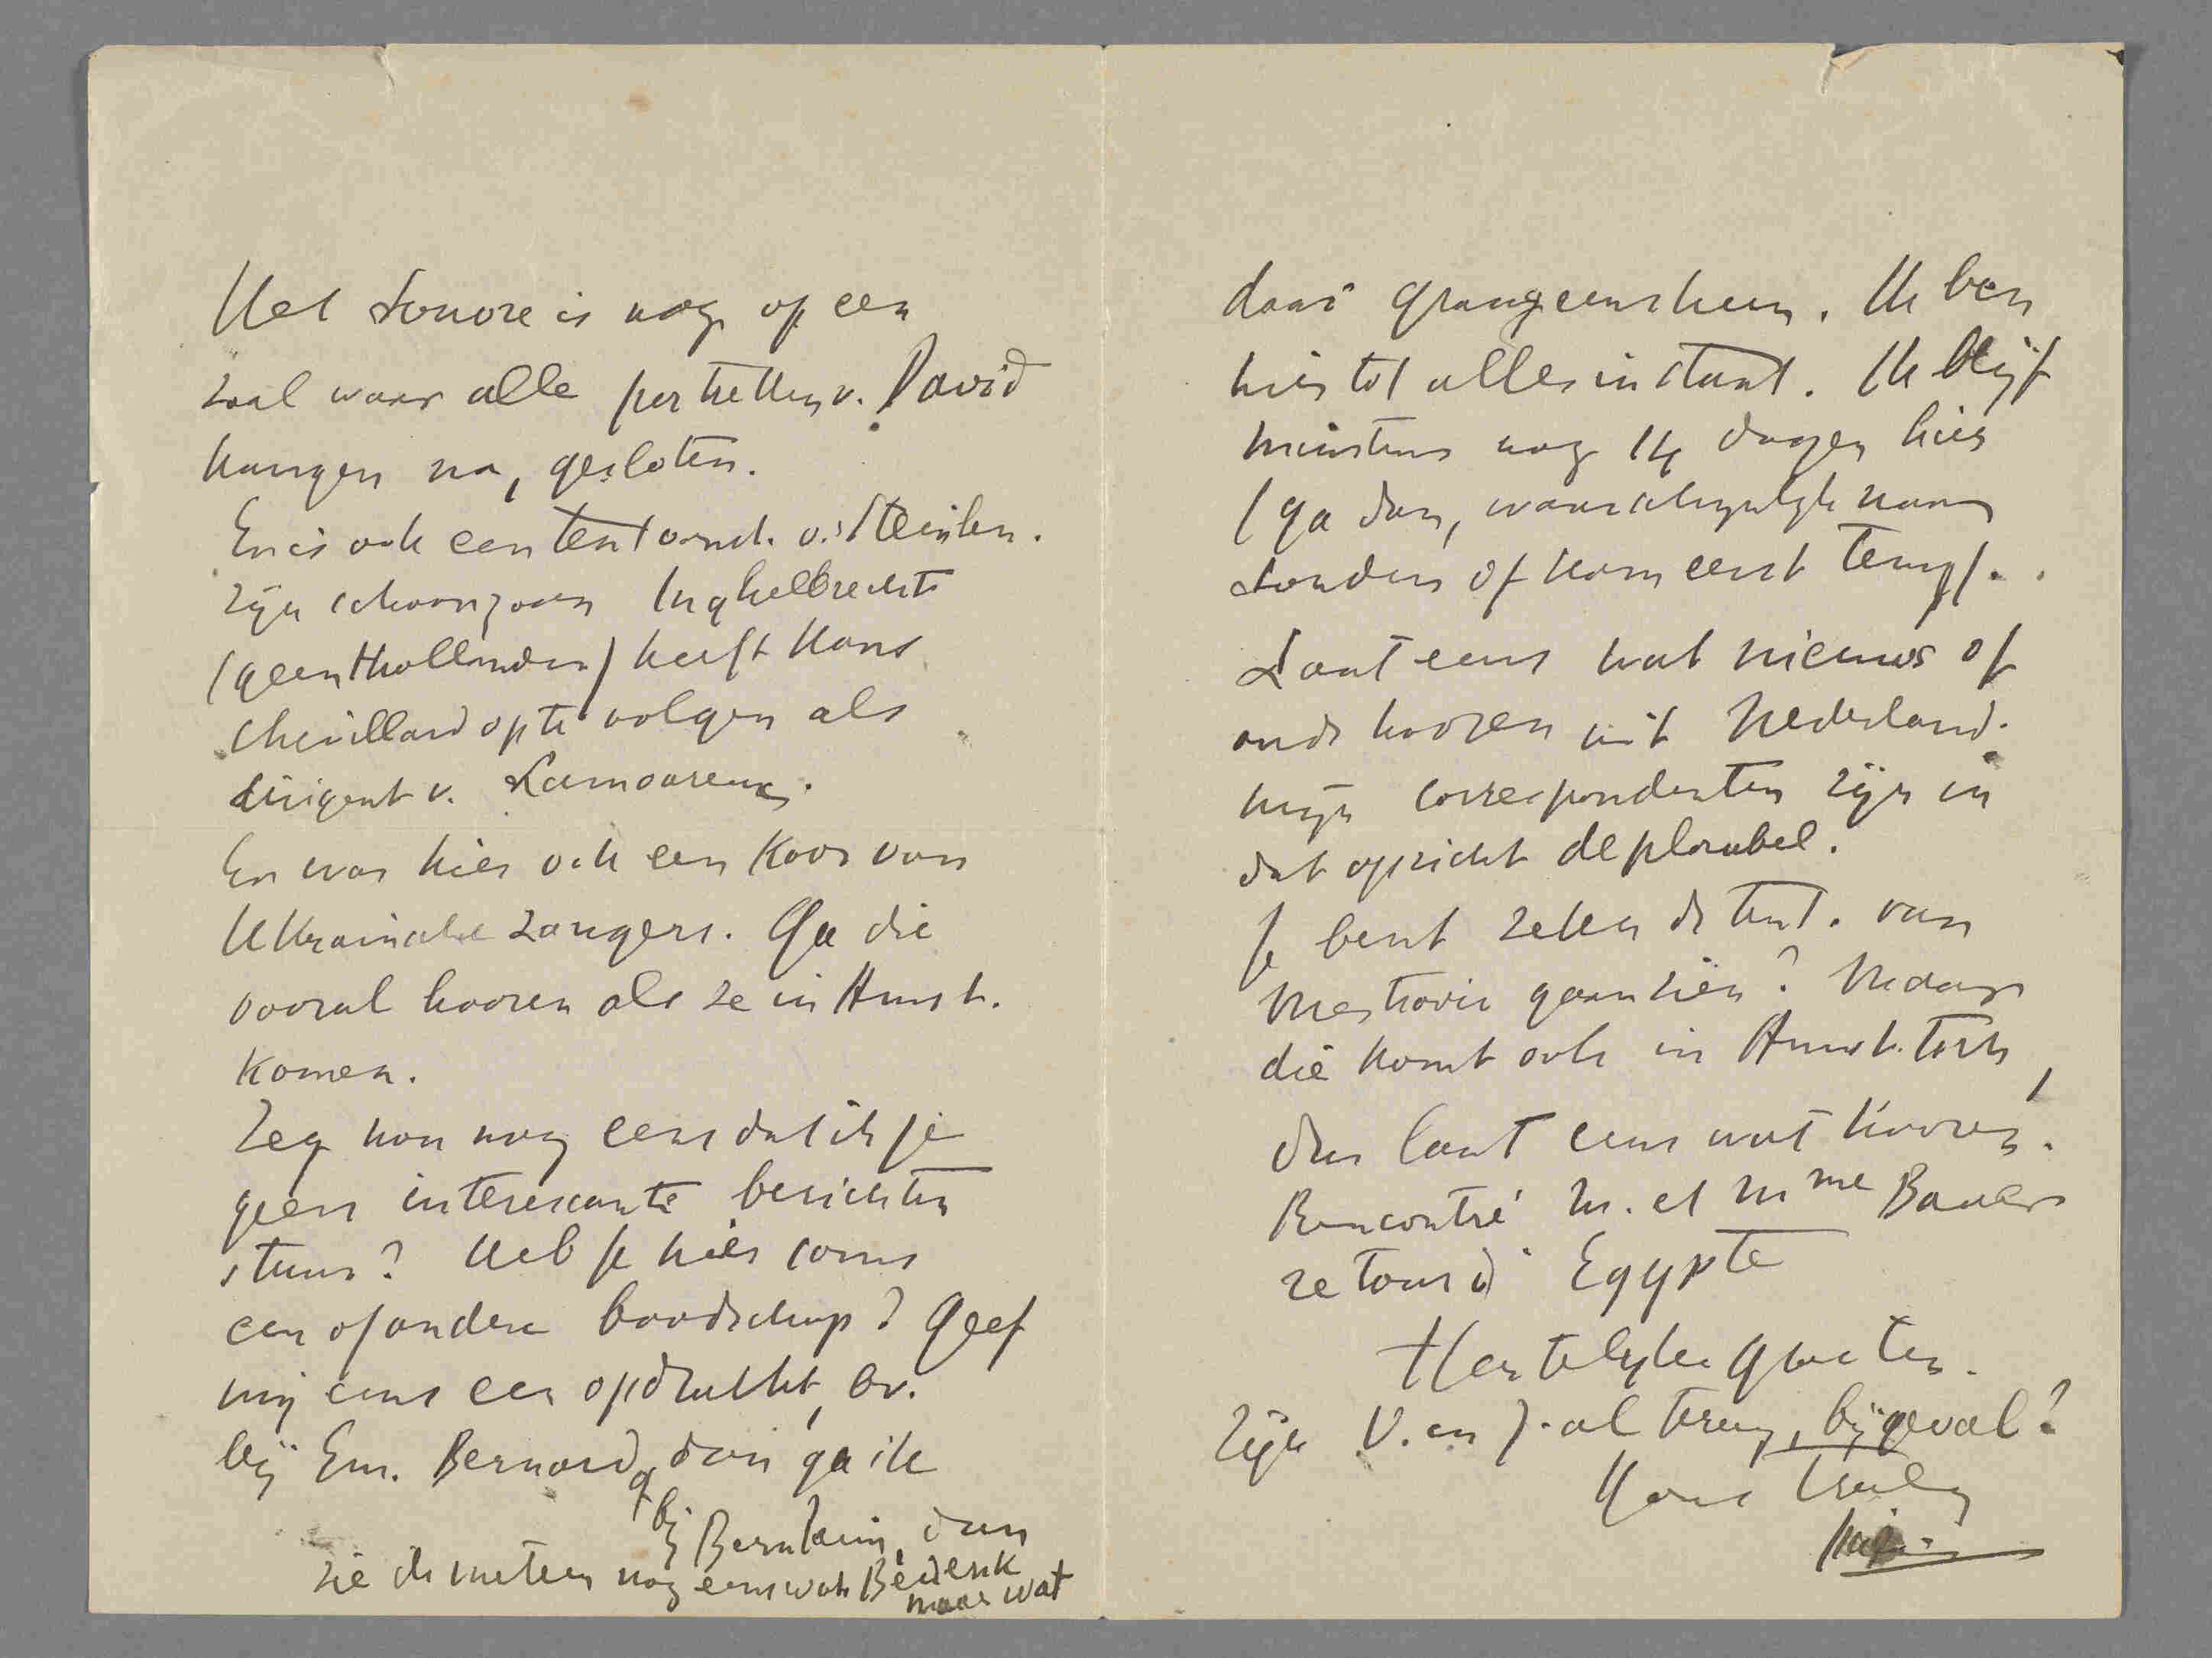 Het Louvre is nog op een
zaal waar alle portretten v. David
hangen na, gesloten.
Er is ook een tentoonst. v. Steinlen.
Zijn schoonzoon Inghelbrecht
(geen Hollander) heeft kans
Chevillard op te volgen als
dirigent v. Lamoureux.
Er was hier ook een Koor van
Ukrainische zangers. Ga die
vooral hooren als ze in Amst.
komen.
Zeg nou nog eens dat ik je
geen interessante berichten
stuur? Heb je hier soms
een of andere boodschap? Geef
mij eens een opdracht, bv.
bij Em. Bernard, dan ga ik
of bij Bernheim, dan
zie ik meteen nog eens wat. Bedenk
maar wat
daar graag eens heen. Ik ben
hier tot alles in staat. Ik blijf
minstens nog 14 dagen hier
(ga dan, waarschijnlijk naar
Londen of kom eerst terug).
Laat eens wat nieuws of
ouds hooren uit Nederland.
Mijn correspondenten zijn in
dat opzicht deplorabel.
Je bent zeker de tent. van
Mestrovic gaan zien? Maar
die komt ook in Amst. toch,
dus laat eens wat hooren.
Rencontré M. et Mme Bauer
retour d' Egypte
Hartelijke groeten.
Zijn V. en J. al terug, bijgeval?
Yours truly